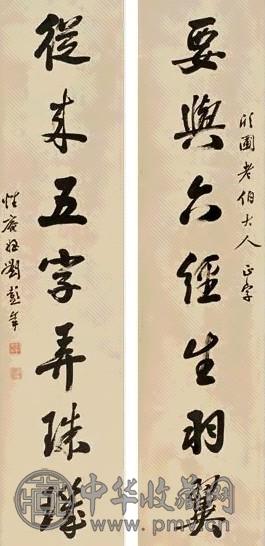 圃老伯大人 正字
要與六經生羽翼
從來五字弄珠璣
惺庵姪劉彭年
中华收藏网
www.pmv.cn